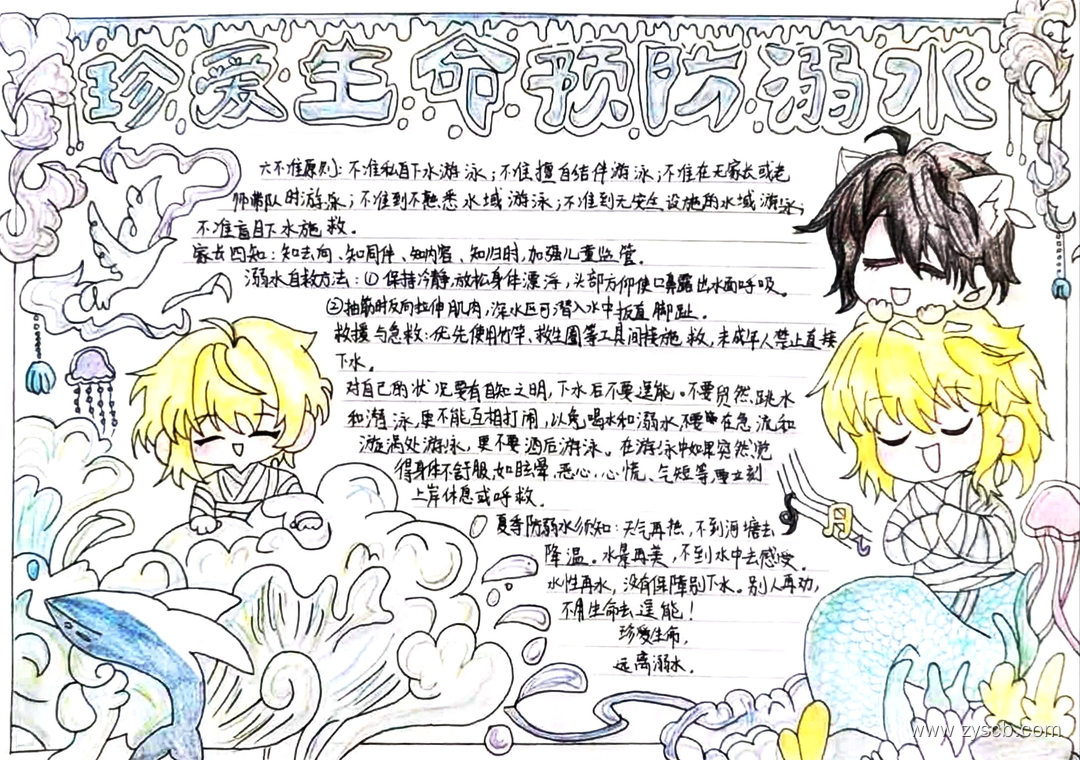 珍爱生命预防溺水
六不准原则：不准私自下水游泳；不准擅自结伴游泳；不准在无家长或老
师带队时游泳；不准到不熟悉水域游泳；不准到无安全设施的水域游泳；
不准盲目下水施救。
家长四知：知去向、知同伴、知内容、知归时，加强儿童监管。
溺水自救方法：①保持冷静，放松身体漂浮，头部方仰使口鼻露出水面呼吸。
②抽筋时反向拉伸肌肉，深水区可潜入水中扳直脚趾。
救援与急救：优先使用竹竿、救生圈等工具间接施救，未成年人禁止直接
下水。
对自己的状况要有自知之明，下水后不要逞能。不要贸然跳水
和潜泳，更不能互相打闹，以免喝水和溺水，不要在急流和
漩涡处游泳，更不要酒后游泳。在游泳中如果突然觉
得身体不舒服，如眩晕、恶心、心慌、气短等，要立刻
上岸休息或呼救。
夏季防溺水须知：天气再热，不到河塘去
降温。水是再美，不到水中去感受。
水性再水，没有保障别下水。别人再劝，
不用生命去逞能！
珍爱生命，
远离溺水。
月
www.zyscb.com